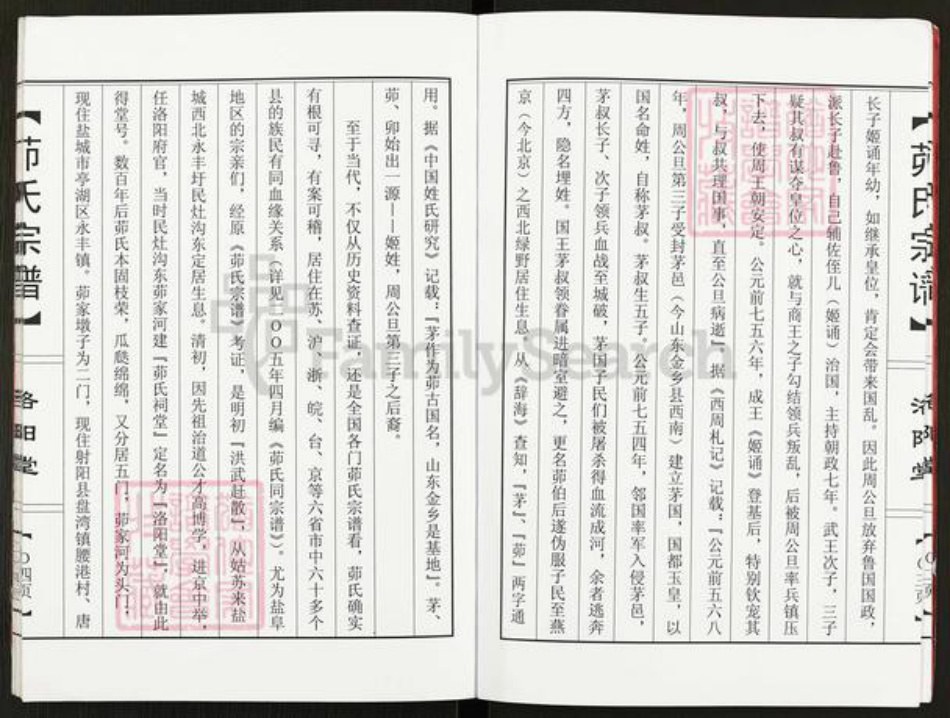 【茆氏宗谱】 洛阳堂
长子姬诵年幼，如继承皇位，肯定会带来国乱。因此周公旦放弃鲁国国政，
派长子赴鲁，自己辅佐侄儿（姬诵）治国，主持朝政七年。武王次子，三子
疑其叔有谋夺皇位之心，就与商王之子勾结领兵叛乱，后被周公旦率兵镇压
下去，使周王朝安定。公元前七五六年，成王《姬诵》登基后，特别钦宠其
叔，与叔共理国事，直至公旦病逝』。据《西周札记》记载：『公元前五六八
年，周公旦第三子受封茅邑（今山东金乡县西南）建立茅国，国都玉皇，以
国名命姓，自称茅叔。茅叔生五子，公元前七五四年，邻国率军入侵茅邑，
茅叔长子、次子领兵血战至城破，茅国子民们被屠杀得血流成河，余者逃奔
四方，隐名埋姓。国王茅叔领眷属进暗室避之，更名茆伯后遂伪服子民至燕
京（今北京）之西北绿野居住生息，从《辞海》查知，『茅』、『茆』两字通
用。据《中国姓氏研究》记载：『茅作为茆古国名，山东金乡是基地』。茅、
茆、卯始出一源——姬姓，周公旦第三子之后裔。
至于当代，不仅从历史资料查证，还是全国各门茆氏宗谱看，茆氏确实
有根可寻，有案可稽，居住在苏、沪、浙、皖、台、京等六省市中六十多个
县的族民有同血缘关系（详见二〇〇五年四月编《茆氏同宗谱》）。尤为盐阜
地区的宗亲们，经原《茆氏宗谱》考证，是明初『洪武赶散』，从姑苏来盐
城西北永丰圩民灶沟东定居生息。清初，因先祖治道公才高博学，进京中举，
任洛阳府官，当时民灶沟东茆家河建『茆氏祠堂』定名为『洛阳堂』，就由此
得堂号。数百年后茆氏本固枝荣，瓜瓞绵绵，又分居五门，茆家河为头门，
现住盐城市亭湖区永丰镇。茆家墩子为二门，现住射阳县盘湾镇腰港村、唐
【茆氏宗谱】 洛阳堂 【〇四页】
FamilySearch